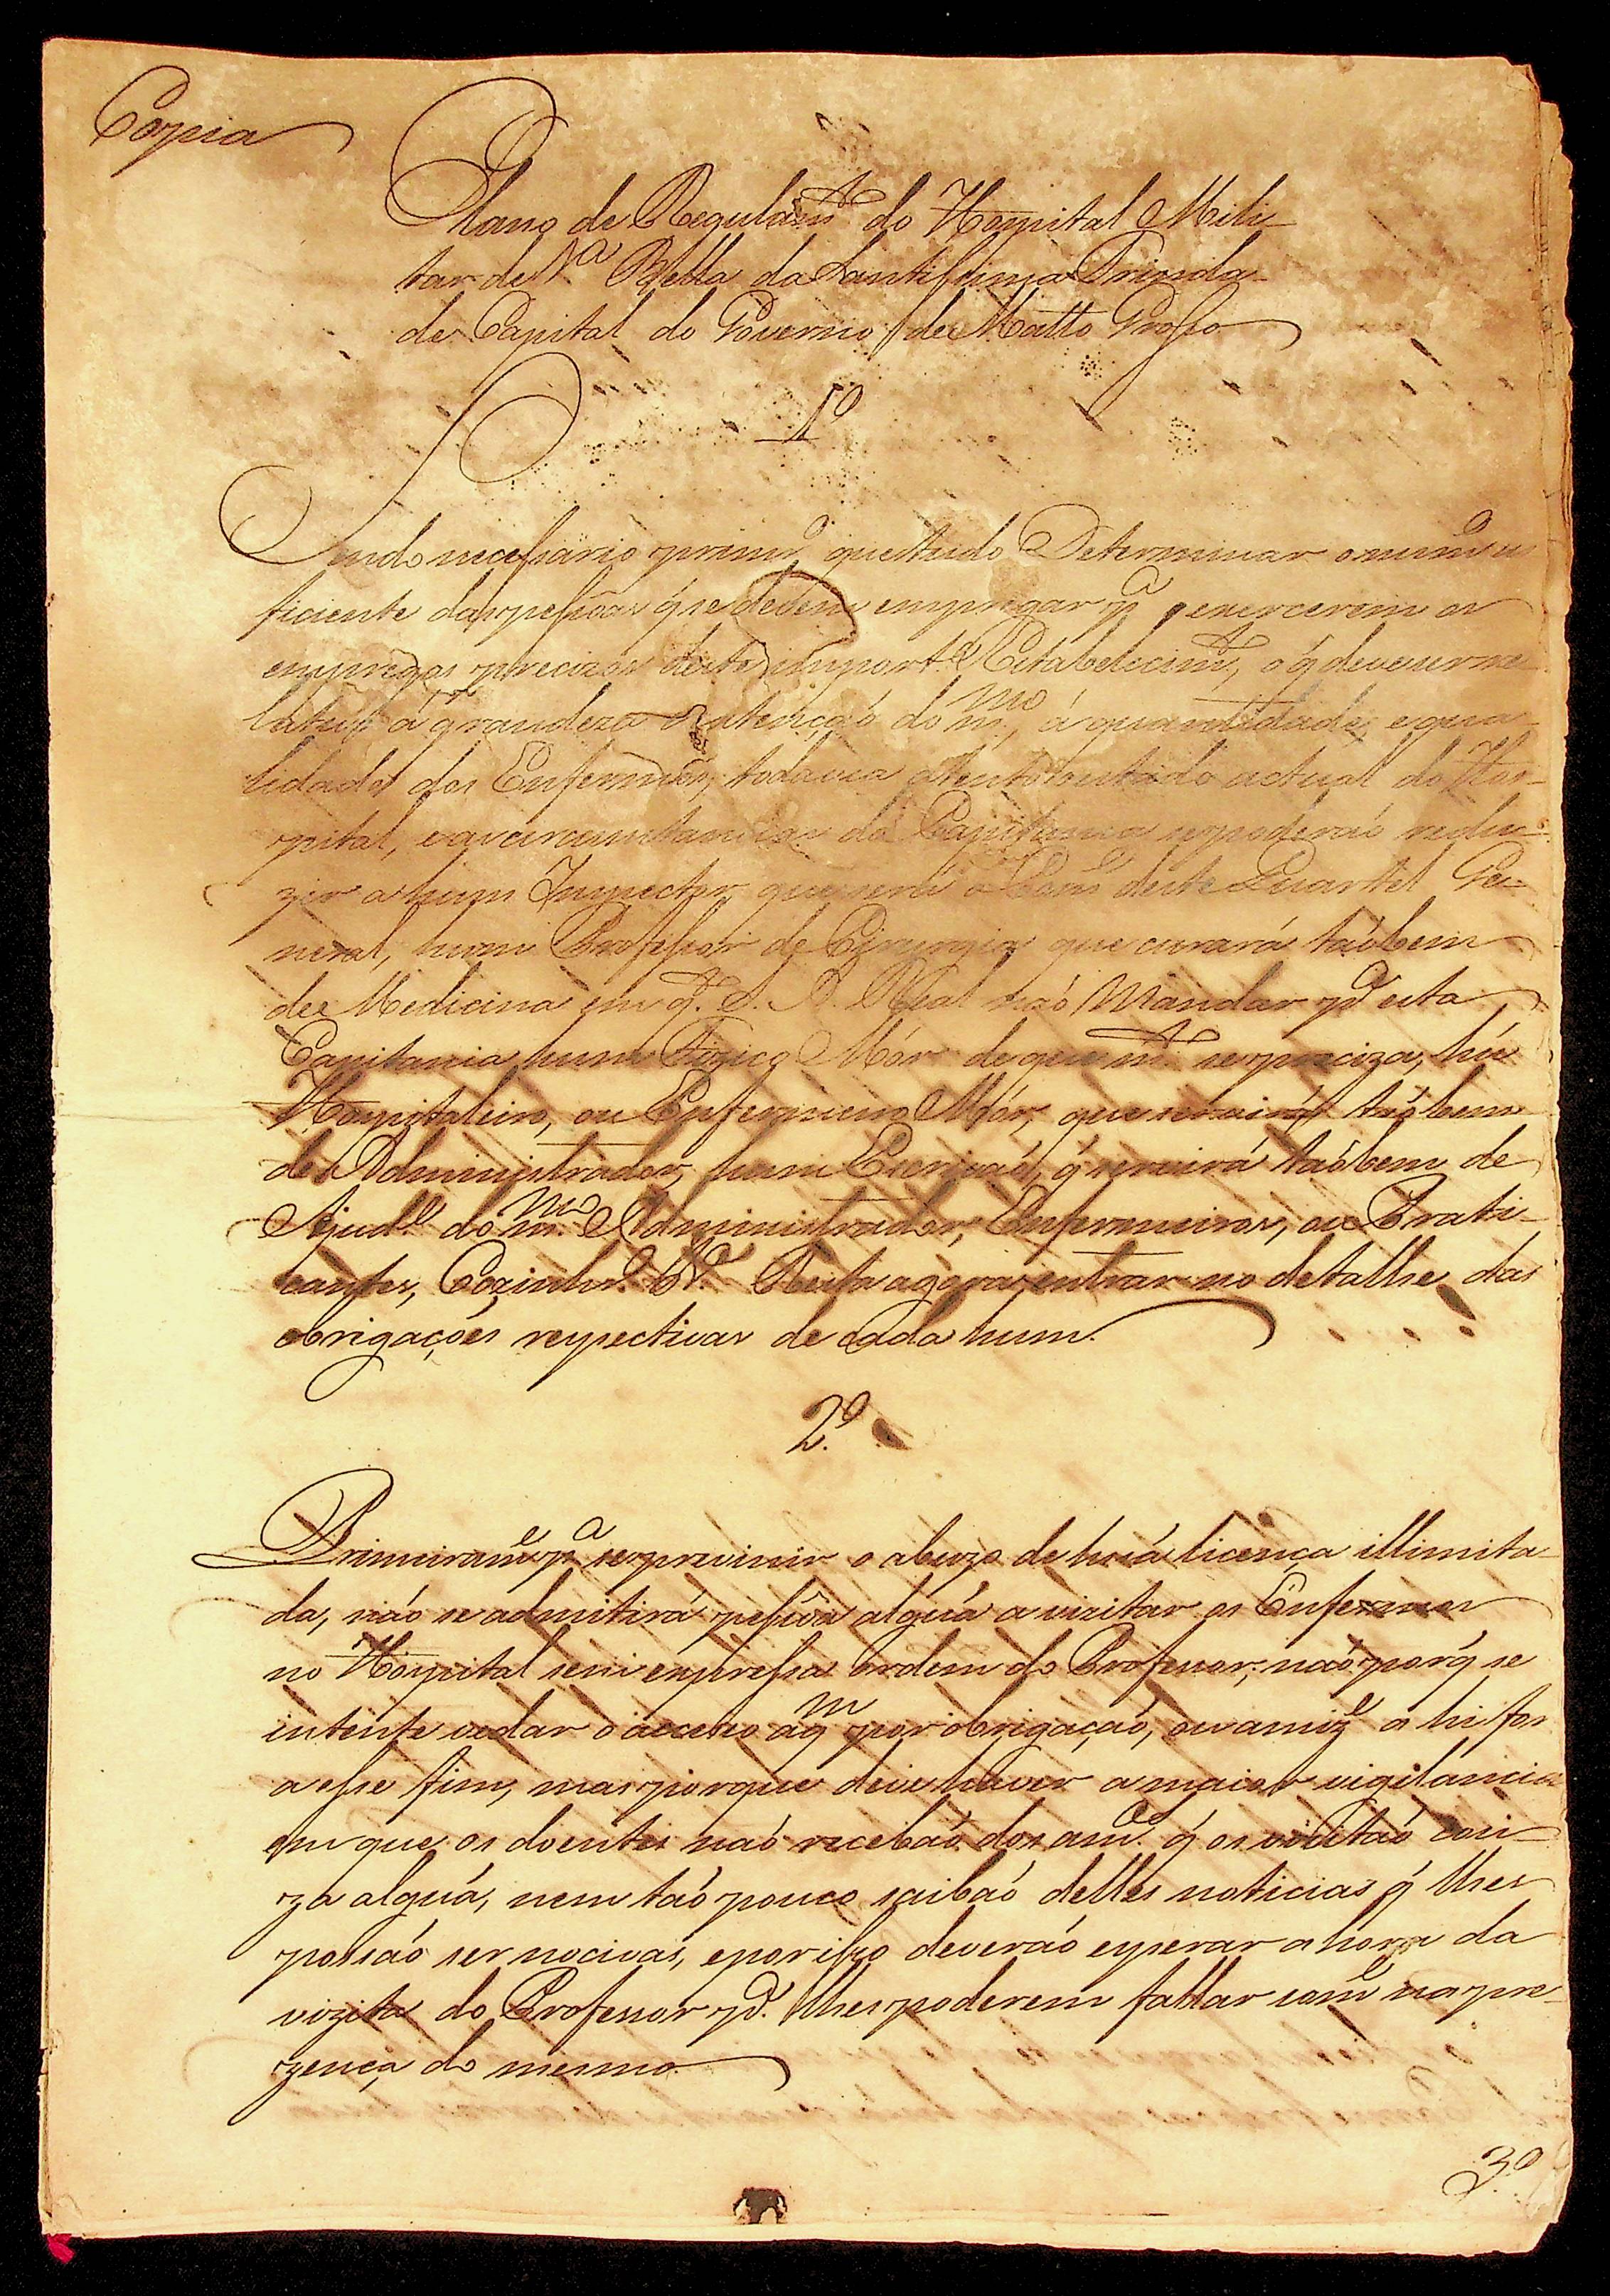 Copia
Plano de Regulam.to do Hospital Mili-
tar de V.a Bella da Santissima Trinda-
de Capital do Governo de Matto Grosso
1.º
Sendo necessario prim.ro que tudo Determinar o num.ro su
ficiente das pessoas q̃ se devem empregar p.a exercerem os
empregos precizos deste import.e Estabelecim.to, o q̃ deve ser re
lativo á grandeza do m.mo, á quantidade, e qua-
lidade dos Enfermos, todavia atento o estado actual do Hos-
pital, e as circumstancias da Capitania se poderaõ redu-
zir a hum Inspector, que será o Com.e deste Quartel Ge-
neral, hum Professor de Cirurgia que curará taõbem
de Medicina em q.to S. A. Real naõ Mandar p.a esta
Capitania hum Fizico Mór de que m.to se preciza, hũ
Hospitaleiro, ou Enfermeiro Mór, que servirá taõbem
de Administrador, hum Escrivaõ, q̃ servirá taõbem de
Ajud.e do m.mo Administrador, Enfermeiros, ou Prati-
cantes, Cozinhr.o &.a Resta agora entrar no detalhe das
obrigações respectivas de cada hum.
2.º
Primeiram.e p.a se previnir o abuzo de huã licença illimita-
da, naõ se admitirá pessoa alguã a vizitar os Enfermos
no Hospital sem expressa ordem do Professor; naõ porq̃ se
intente vedar o accesso a q.m por obrigaçaõ, ou amiz.e a hi for
a esse fim, mas porque deve haver a maior vigilancia
em que os doentes naõ recebaõ dos am.os q̃ os vizitaõ cou-
za alguã, nem taõ pouco saibaõ delles noticias q̃ lhes
possaõ ser nocivas, e por isso deveraõ esperar a hora da
vizita do Professor p.a lhes poderem fallar som.e na pre-
zença do mesmo.
3.º